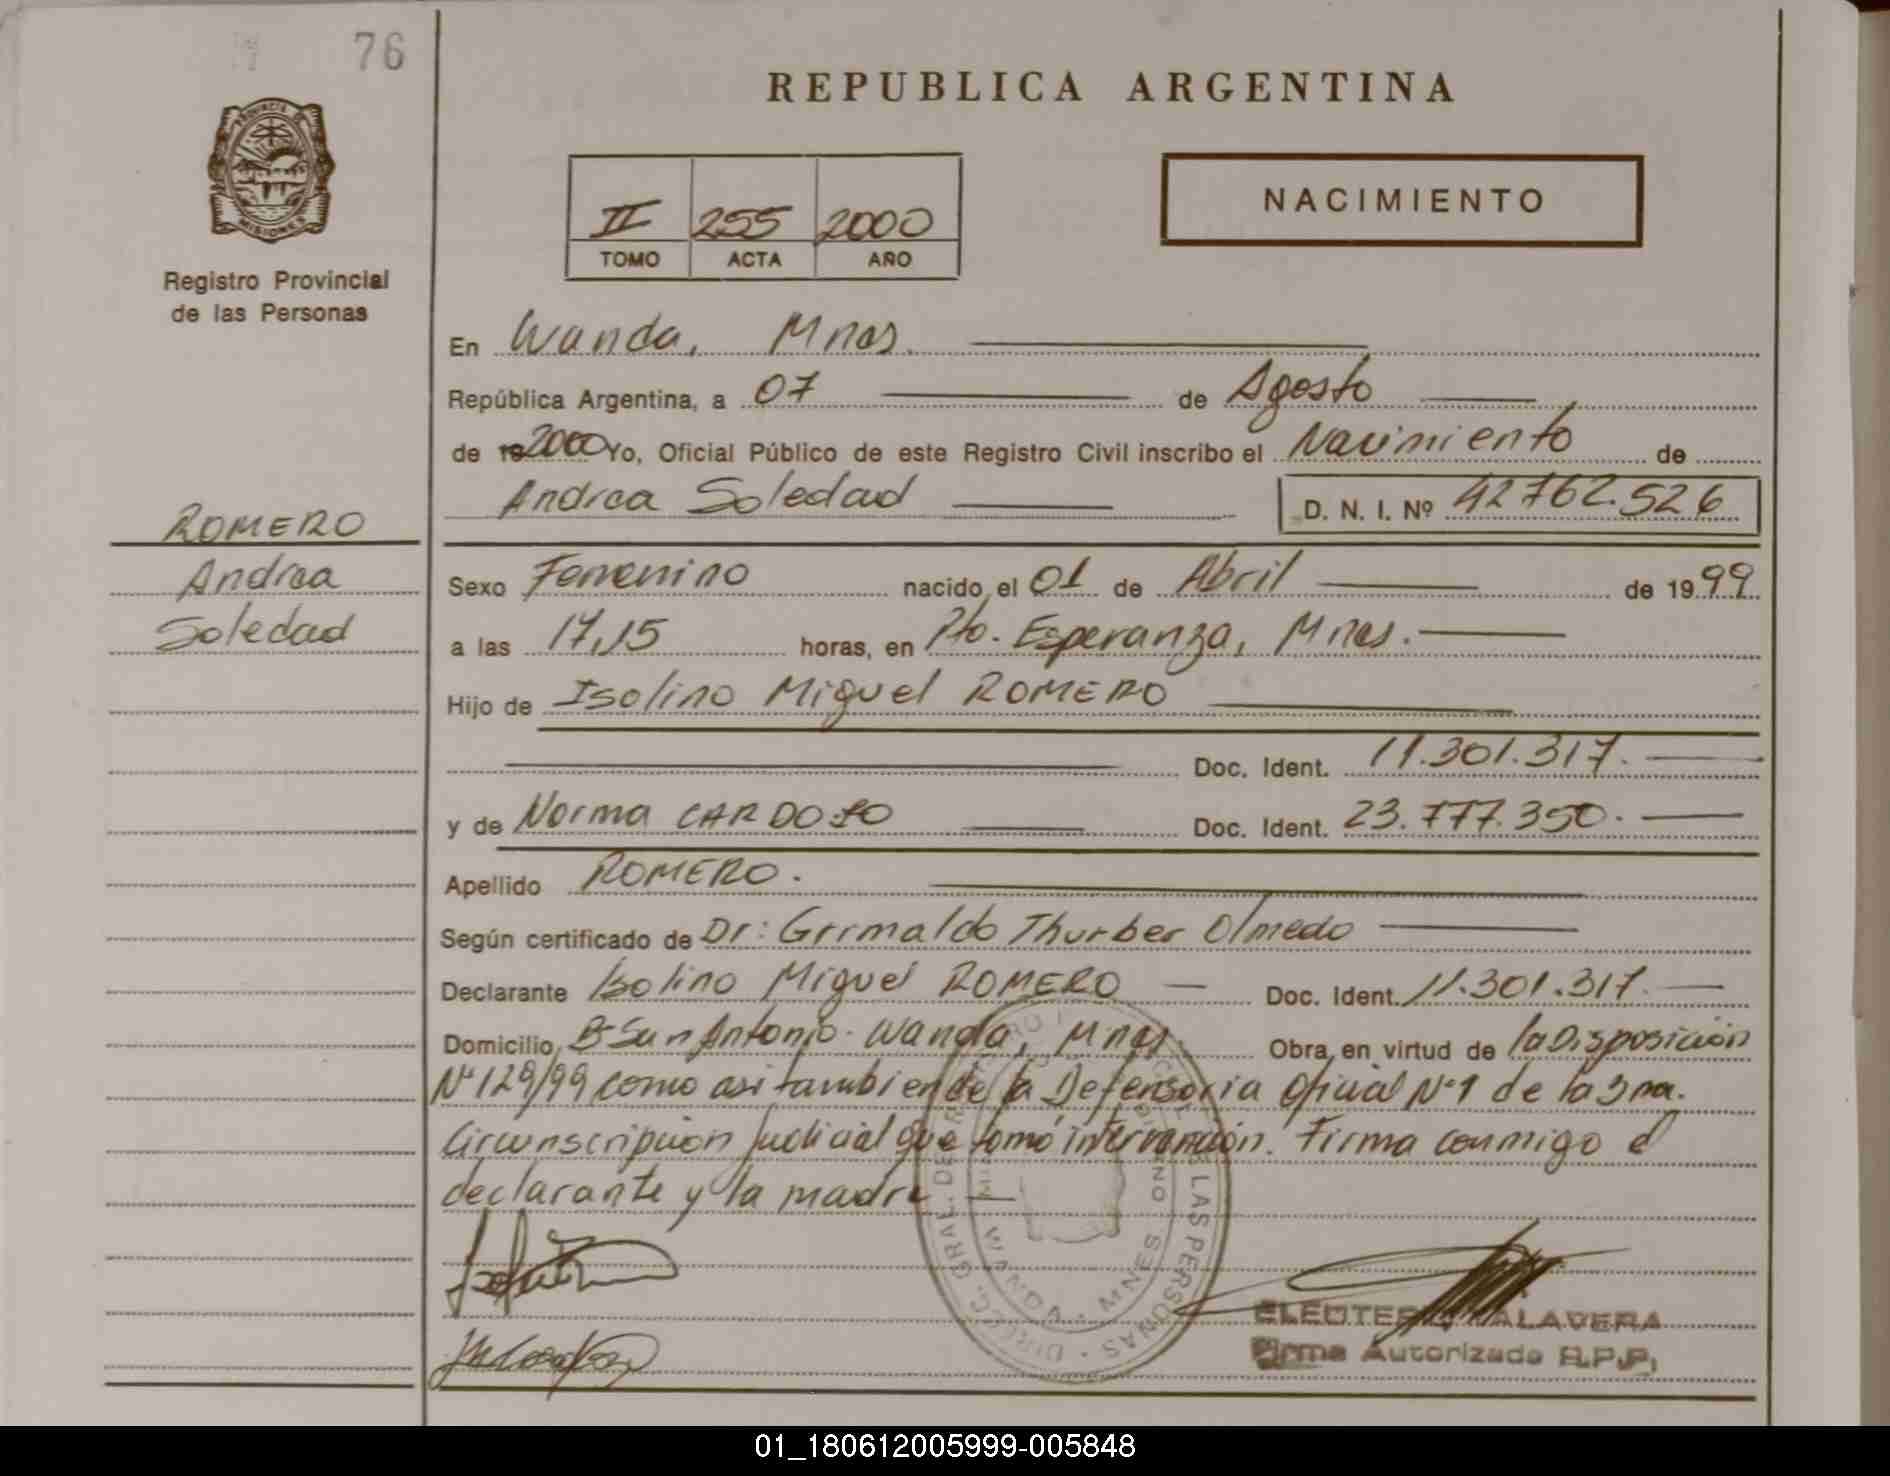 76
REPUBLICA ARGENTINA
PROVINCIA DE
MISIONES
Registro Provincial
de las Personas
II 255 2000
TOMO ACTA AÑO
NACIMIENTO
En Wanda, Mnes.
República Argentina, a 07 de Agosto
de 19 2000 Yo, Oficial Público de este Registro Civil inscribo el Nacimiento de
Andrea Soledad D. N. I. Nº 42762.526
ROMERO
Andrea
Soledad
Sexo Femenino nacido el 01 de Abril de 1999
a las 17,15 horas, en Pto. Esperanza, Mnes.
Hijo de Isolino Miguel ROMERO
Doc. Ident. 11.301.317.
y de Norma CARDOZO Doc. Ident. 23.777.350.
Apellido ROMERO.
Según certificado de Dr: Grimaldo Thurber Olmedo
Declarante Isolino Miguel ROMERO Doc. Ident. 11.301.317.
Domicilio Bº San Antonio. Wanda, Mnes. Obra en virtud de la Disposición
Nº 129/99 como asi tambien de la Defensoria Oficial Nº 1 de la 3ra.
Circunscripcion Judicial que tomó intervención. Firma conmigo el
declarante y la madre
DIREC. GRAL. DEL LAS PERSONAS
WANDA - MNES
ELEUTERIO TALAVERA
Firma Autorizada R.P.P.
01_180612005999-005848